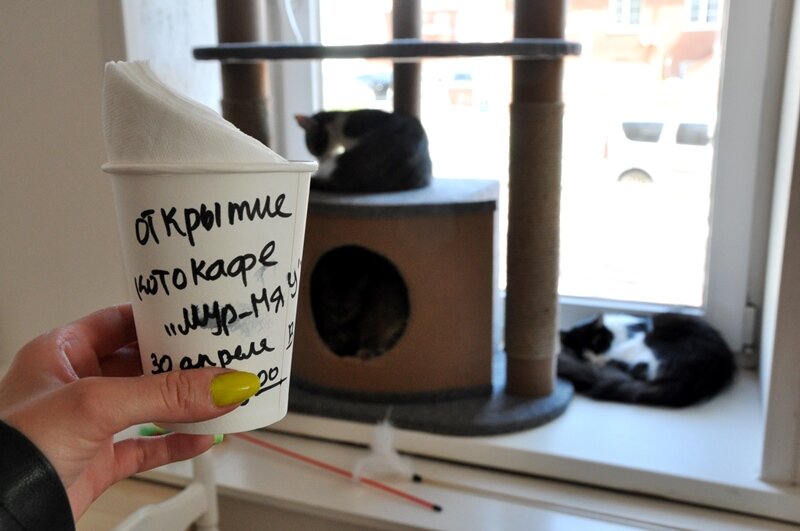 открытие
котокафе
"мур-мяу"
30 апреля в
:00